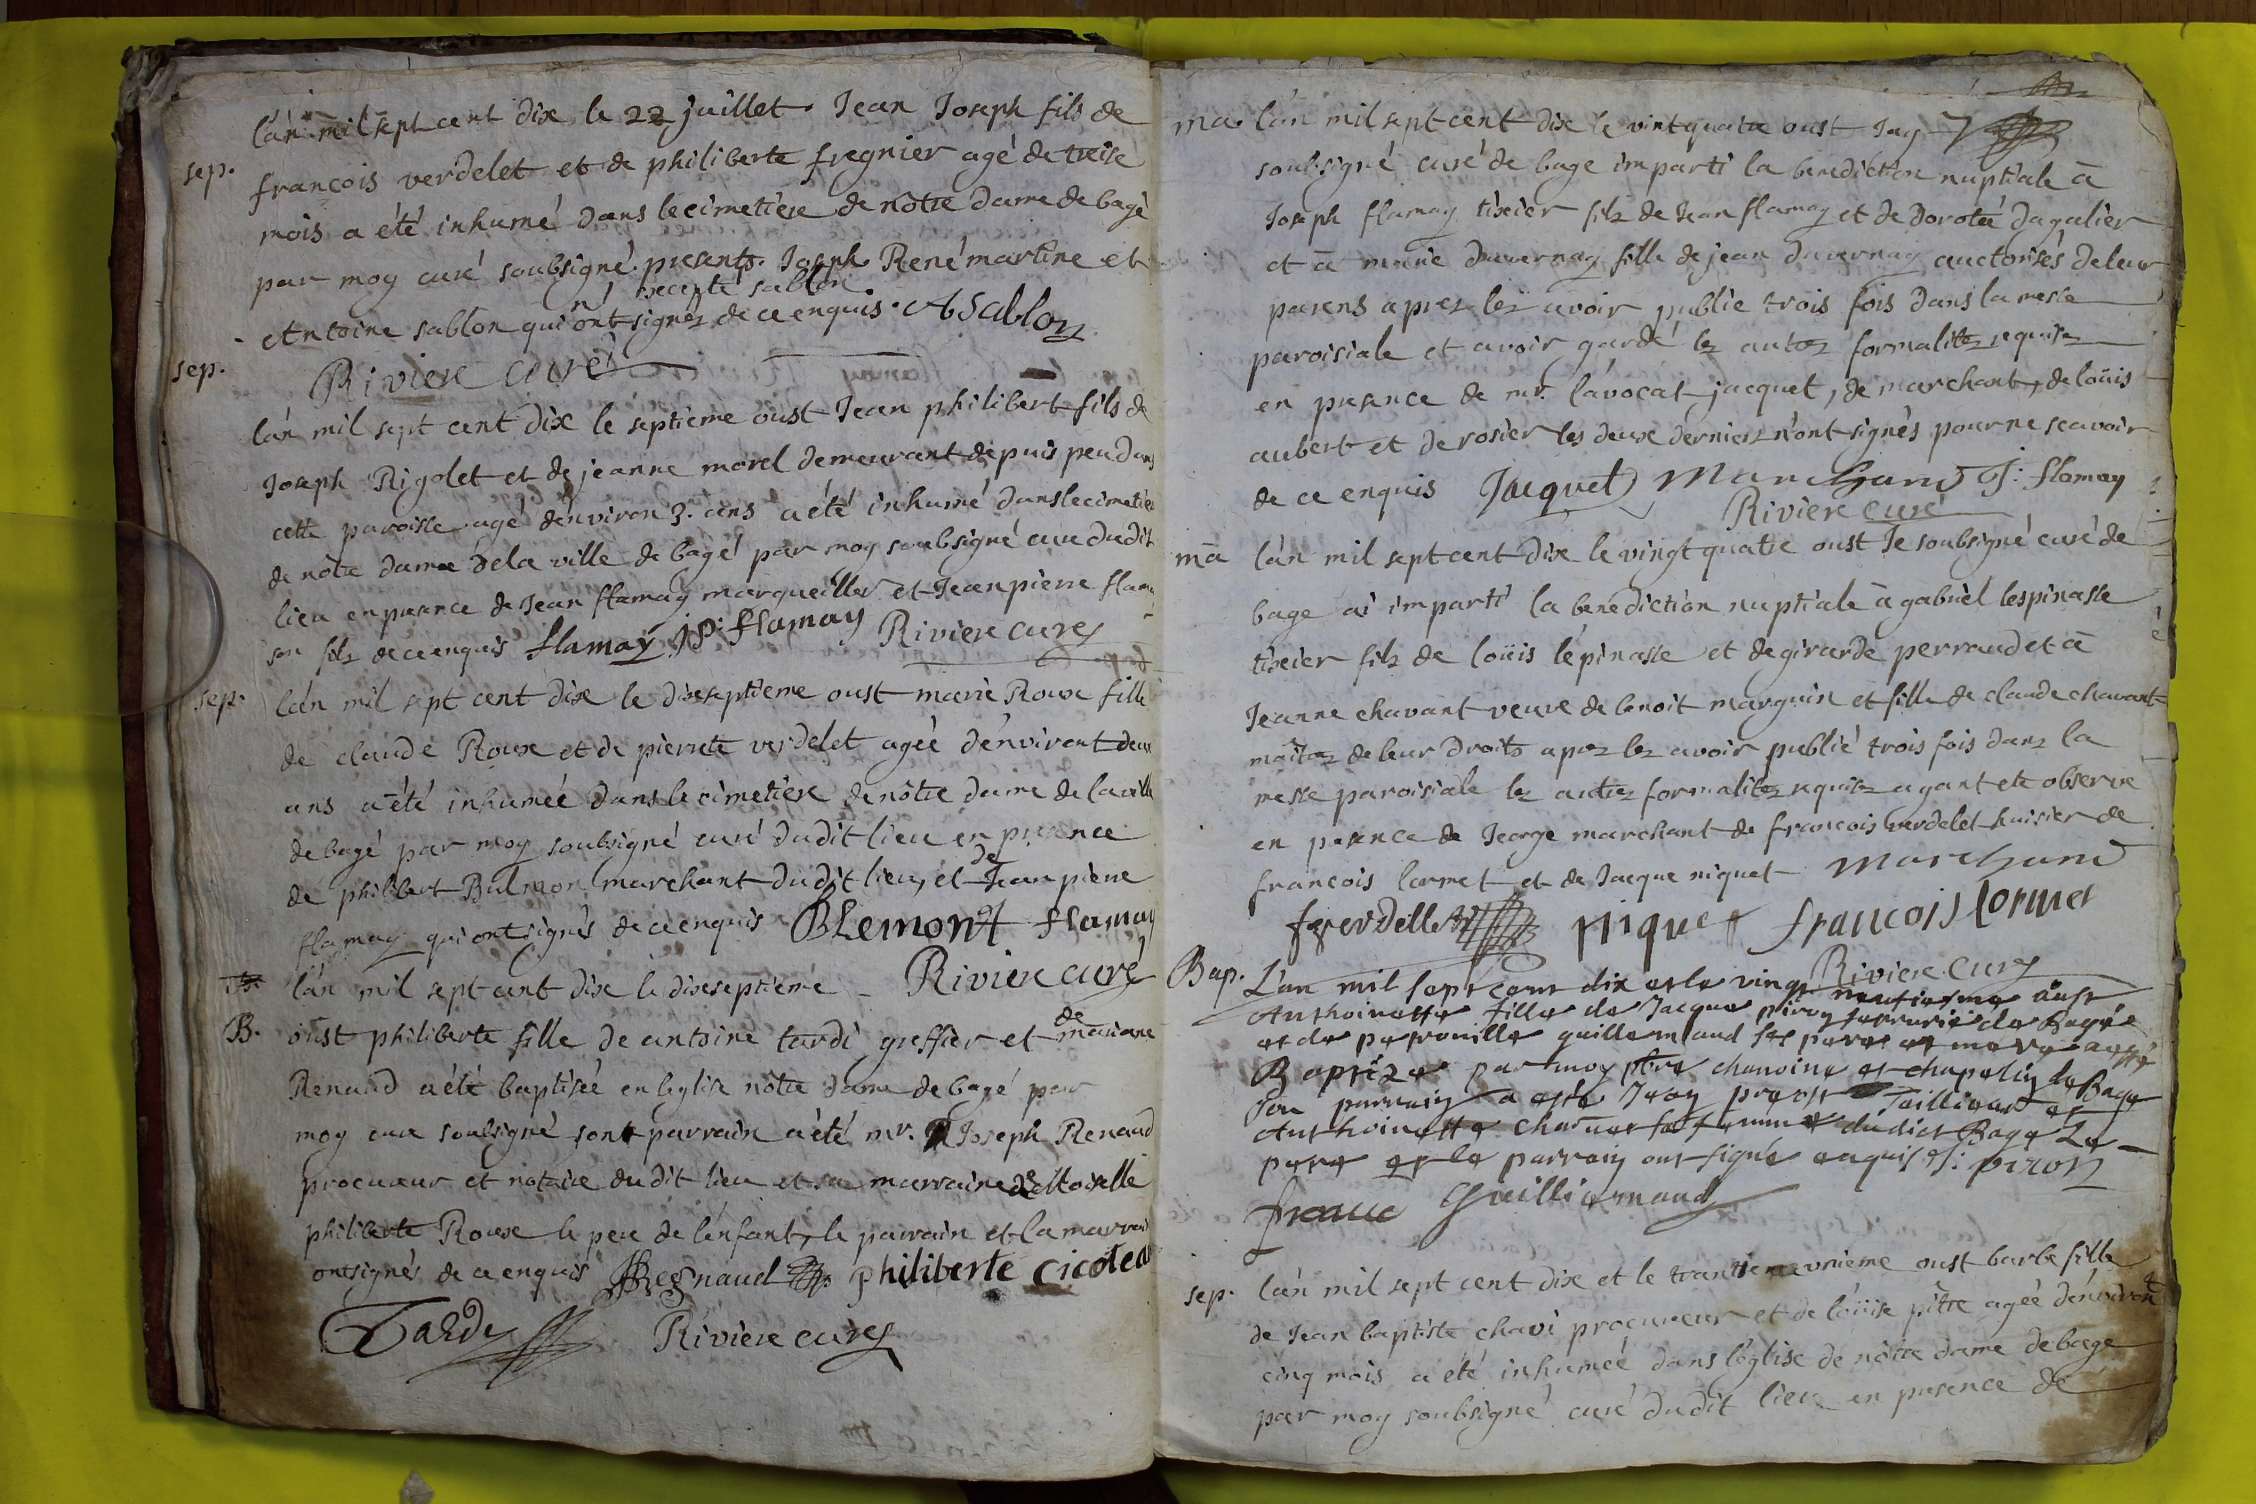 l'an mil sept cent dix le 22 juillet Jean Joseph fils de
sep. françois verdelet et de philiberte fregnier agé de treise
mois a été inhumé dans le cimetiere de nôtre dame de bagé
par moy curé soubsigné presents Joseph René martine et
n'
Antoine sablon qui ont signez de ce enquis. A Sablon
sep. Riviere curé
l'an mil sept cent dix le septieme oust Jean philibert fils de
Joseph Rigolet et de jeanne morel demeurant depuis peu dans
cette paroisse agé d'environ 3. ans a été inhumé dans le cimetier
de nôtre dame de la ville de bagé par moy soubsigné curé dudit
lieu en presance de Jean flamay marqueiller et Jean pierre flama
son filz de ce enquis flamay jp: flamay Riviere curé
sep. l'an mil sept cent dix le dixseptieme oust marie Roux fille
de claude Roux et de pierrete verdelet agée d'environt deux
ans a été inhumée dans le cimetiere de nôtre dame de la ville
de bagé par moy soubsigné curé dudit lieu en presence
de
de philibert Bulmon marchant dudit lieu, et Jean pierre
flamay qui ont signés de ce enquis BLemont flamay
l'an mil sept cent dix le dixseptieme Riviere curé
de
B. oust philiberte fille de antoine tardi greffier et mariane
Renaud a été baptisée en leglise nôtre dame de bagé par
moy curé soubsigné sont parrain a été mr. Joseph Renaud
procureur et notaire du dit lieu et sa marraine demoiselle
philiberte Roux le pere de l'enfant, le parrain et la marrain
ont signés de ce enquis Regnaud philiberte cicotea
Tardy Riviere curé
ma. l'an mil sept cent dix le vint quatre oust Jay
soubsigné curé de bage imparti la benediction nuptiale à
Joseph flamay tixier filz de Jean flamay et de Dorotée dagalier
et à marie duvernay fille de jean duvernay auctorisés de leur
parens aprez lez avoir publie trois fois dans la messe
paroisiale et avoir gardé lez autrez formalitez requisez
en presence de mr. l'avocat jacquet, de marchant, de loüis
aubert et de rosier les deux derniers n'ont signés pour ne scavoir
de ce enquis Jacquet Marchand J: flamay
Riviere curé
ma l'an mil sept cent dix le vingt quatre oust Je soubsigné curé de
bage ai imparti la benediction nuptiale à gabriel lespinasse
tixier filz de loüis lépinasse et de girarde perraud et à
Jeanne chavant veuve de benoit marguin et fille de claude chavant
maîtrez de leur droits aprez lez avoir publié trois fois danz la
messe paroisiale lez autrez formalitez requisez ayant ete observé
en presence de Jeorge marchant de françois verdelet huisier de
françois lormet et de Jacque niquet Marchand
fverdellet niquet francois lormet
Riviere Curé
Bap. L'an mil sept cent dix et le vingt neufiesme aust
Anthoinette fille de Jacque piron serrurié de Bagé
et de petronille guillermaud ses pere et mere a esté
Baptizée par moy pbre chanoine et chapelin de Bage
son parrain a esté Jean prost Taillieur et
Anthoinette sa femme dudict Bage Le
pere et le parrain ont signé enquis J: piron
franc Guilliermaud
sep. l'an mil sept cent dix et le trantieme unieme oust barbe fille
de Jean baptiste chavi procureur et de loüise pitre agée d'environt
cinq mois a été inhumée dans l'église de nôtre dame de bage
par moy soubsigné curé dudit lieu en presence de